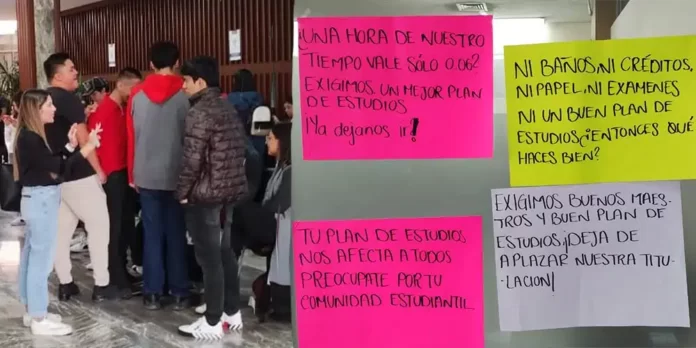 ¿UNA HORA DE NUESTRO
TIEMPO VALE SÓLO 0.06?
EXIGIMOS UN MEJOR PLAN
DE ESTUDIOS
¡Ya dejanos ir!
NI BAÑOS, NI CRÉDITOS,
NI PAPEL, NI EXAMENES
NI UN BUEN PLAN DE
ESTUDIOS ¿ENTONCES QUÉ
HACES BIEN?
TU PLAN DE ESTUDIOS
NOS AFECTA A TODOS
PREOCUPATE POR TU
COMUNIDAD ESTUDIANTIL
EXIGIMOS BUENOS MAES-
TROS Y BUEN PLAN DE
ESTUDIOS, ¡DEJA DE
APLAZAR NUESTRA TITU-
LACION!